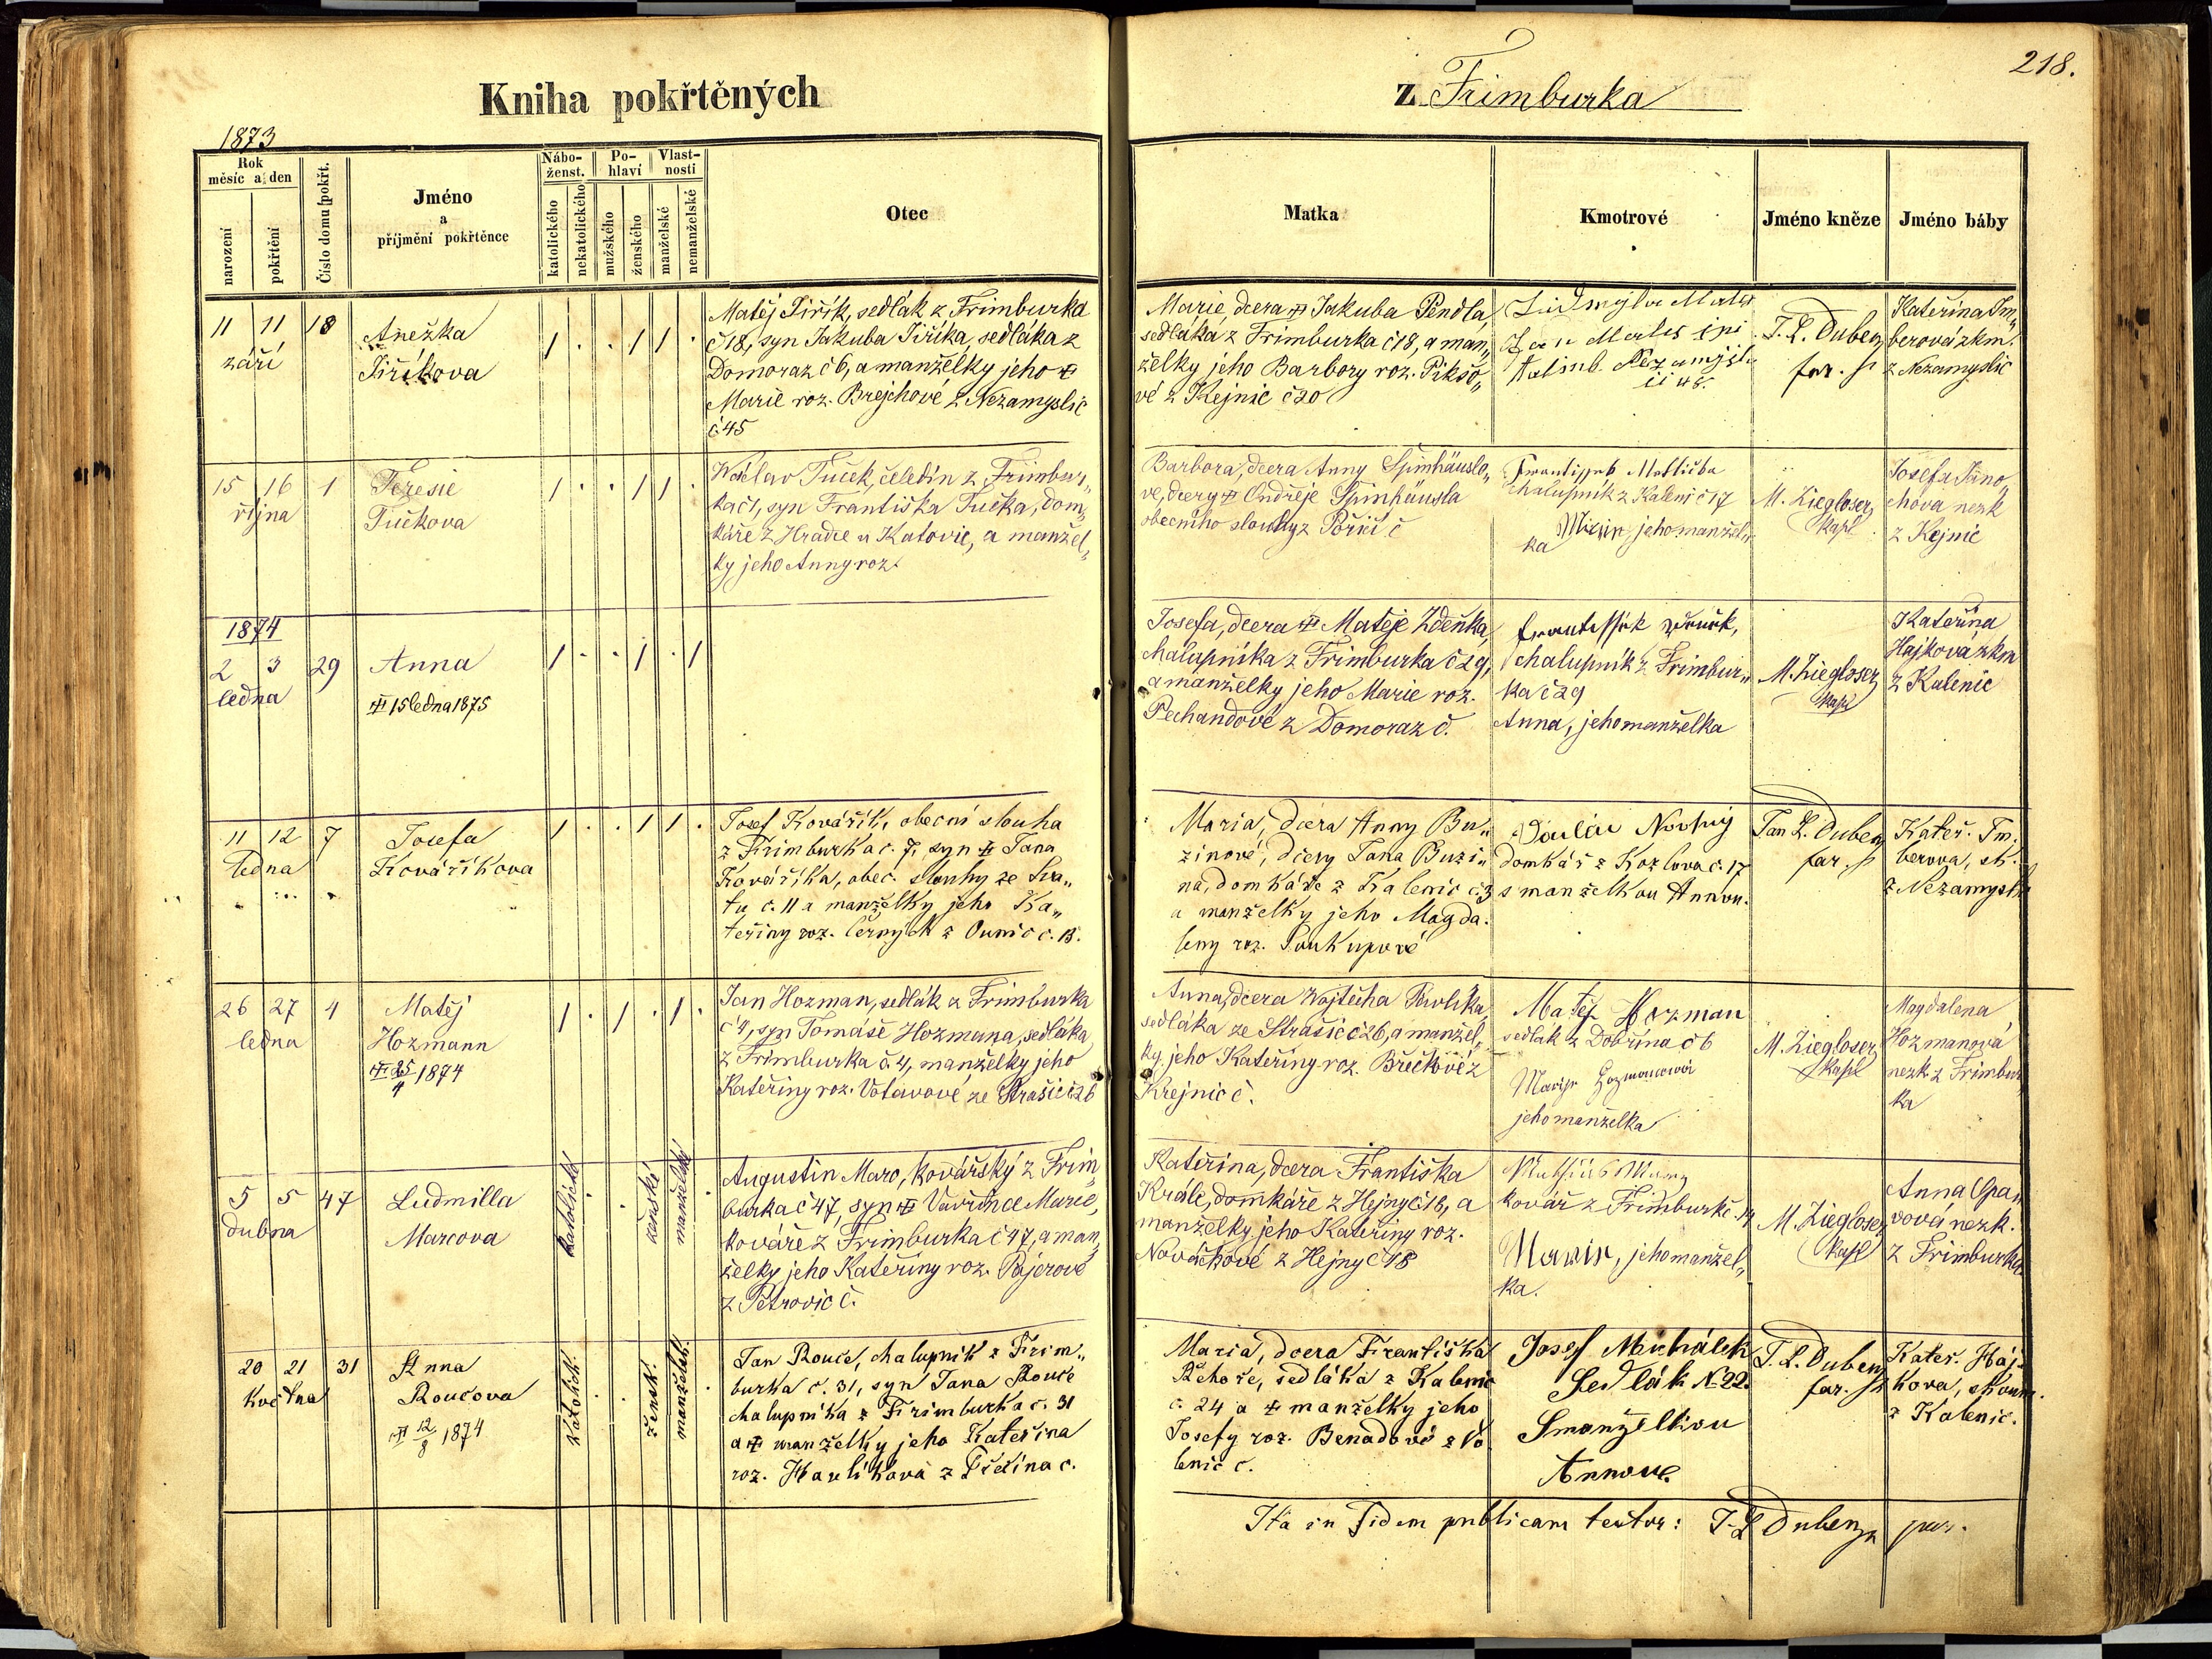 218.
Kniha pokřtěných
z Frimburka
1873
Rok
měsíc a den
narození
pokřtění
Číslo domu pokřt.
Jméno
a
příjmění pokřtěnce
Nábo-
ženst.
katolického
nekatolického
Po-
hlaví
mužského
ženského
Vlast-
nosti
manželské
nemanželské
Otec
Matka
Kmotrové
Jméno kněze
Jméno báby
11 11 18
září
Anežka
Jiříkova
1 . . 1 1 .
Matěj Jiřík, sedlák z Frimburka
č 18, syn Jakuba Jiříka, sedláka z
Domoraz č 6, a manželky jeho
Marie roz. Brejchové z Nezamyslic
č 45
Marie, dcera Jakuba Pendla,
sedláka z Frimburka č 18, a man„
želky jeho Barbory roz. Pikšo„
vé z Kejnic č 20
Ludmyla
Jan
48.
J. L. Duben
far.
Kateřina Im„
berová zkm.
z Nezamyslic
15 16 1
října
Teresie
Tučkova
1 . . 1 1 .
Wáclav Tuček, čeledín z Frimbur„
ka č 1, syn Františka Tučka, dom„
káře z Hradce u Katovic, a manžel„
ky jeho Anny roz.
Barbora, dcera Anny Špinhäuslo„
ve, dcery Ondřeje Špinhäusla
obecního slouhy z Poříčí č
chalupník z Kalenic č 17
jeho manžel„
ka
M. Ziegloser
kapl
Josefa Jáno„
chova nezk
z Kejnic
1874
2 3 29
ledna
Anna
15 ledna 1875
1 . . 1 . 1
Josefa, dcera Matěje Zdeňka,
chalupníka z Frimburka č 29,
a manželky jeho Marie roz.
Pechandové z Domoraz č.
chalupník z Frimbur„
ka č 29
Anna, jeho manželka
M. Ziegloser
kapl
Kateřina
Hajková zkm
z Kalenic
11 12 7
ledna
Josefa
Kováříkova
1 . . 1 1 .
Josef Kovářík, obecní slouha
z Frimburka č. 7, syn Jana
Kováříka, obec. slouhy ze
č. 11 a manželky jeho Ka„
teřiny roz. Černých z Ounic č. 13.
Maria, dcera Anny Bu„
zinové, dcery Jana Buzi„
na, domkáře z Kalenic č. 3
a manželky jeho Magda.
leny roz. Soukupové
Václav Novtný
domkář z Kozlova č. 17
s manželkou Annou.
Jan L. Duben
far.
Kateř. Im.
berova, zk.
z Nezamyslic
26 27 4
ledna
Matěj
Hozmann
25/4 1874
1 . 1 . 1 .
Jan Hozman, sedlák z Frimburka
č 4, syn Tomáše Hozmana, sedláka
z Frimburka č. 4, manželky jeho
Kateřiny roz. Votavové ze Strašic č 26
Anna, dcera Wojtěcha Pavlíka,
sedláka ze Strašic č 26, a manžel„
ky jeho Kateřiny roz. Břečkové z
Krejnic č.
Matěj Hozman
sedlák z Dobřína č 6
Marije Hozmanová
jeho manželka
M. Ziegloser
kapl
Magdalena
Hozmanová
nezk z Frimbur
ka
5 5 47
dubna
Ludmilla
Marcova
katolické
ženské
manželské
Augustin Marc, kovářský z Frim„
burka č 47, syn Vavřince Marce,
kováře z Frimburka č 47, a man„
želky jeho Kateřiny roz. Pajerové
z Petrovic č.
Kateřina, dcera Františka
Krále, domkáře z Hejny č 18, a
manželky jeho Kateřiny roz.
Nováčkové z Hejny č 18
kovář z Frimburk č. 14
Marie, jeho manžel„
ka.
M. Ziegloser
kapl
Anna Opa„
vová nezk.
z Frimburka
20 21 31
května
Anna
Roučova
12/8 1874
katolick.
žensk.
manželsk.
Jan Rouče, chalupník z Frim„
burka č. 31, syn Jana Rouče
chalupníka z Frimburka č. 31
a manželky jeho Kateřina
roz. Havlíková z č.
Maria, dcera Františka
Řehoře, sedláka z Kalenic
č. 24 a manželky jeho
Josefy roz. Benadové z Vo
lenic č.
Josef Michálek
Sedlák N. 22.
Smanželkou
Annou
J. L. Duben
far.
Kateř. Háj-
kova, zkoum.
z Kalenic.
Ita in fidem publicam testor: J. L. Duben par.